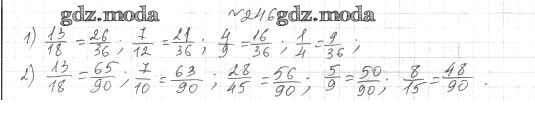 gdz.moda №246 gdz.moda
1) 13/18 = 26/36; 7/12 = 21/36; 4/9 = 16/36; 1/4 = 9/36;
2) 13/18 = 65/90; 7/10 = 63/90; 28/45 = 56/90; 5/9 = 50/90; 8/15 = 48/90.